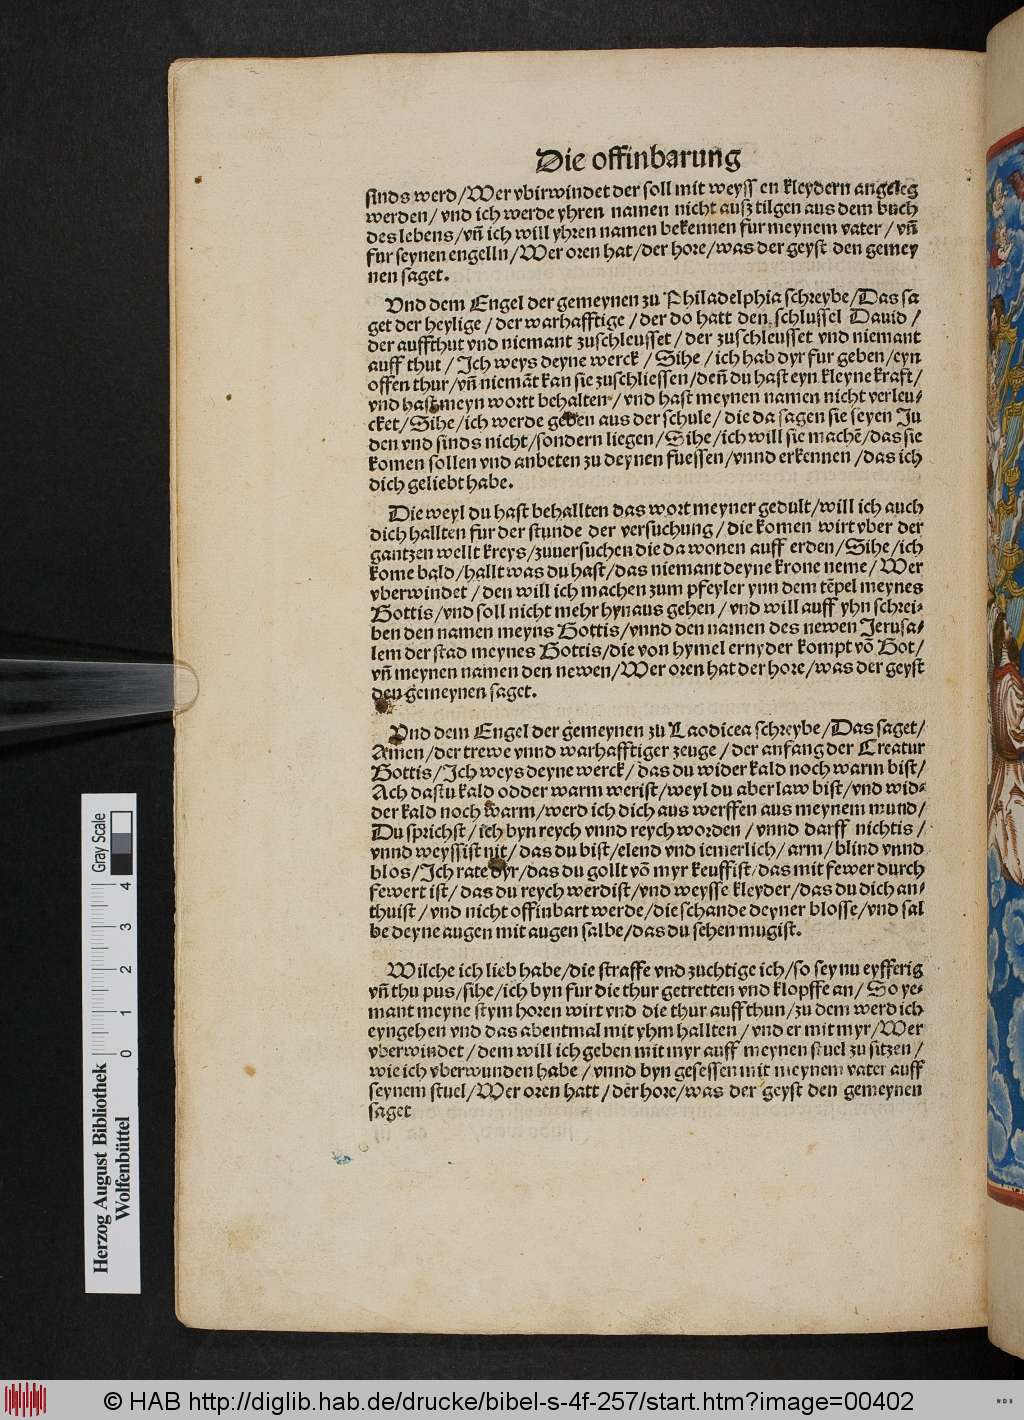 Die offinbarung
sinds werd/Wer vbirwindet der soll mit weyssen kleydern angeleg
werden/ vnd ich werde yhren namen nicht ausz tilgen aus dem buch
des lebens/vñ ich will yhren namen bekennen fur meynem vater/ vñ
fur seynen engelln/Wer oren hat/der hore/was der geyst den gemey
nen saget.
Vnd dem Engel der gemeynen zu Philadelphia schreybe/Das sa
get der heylige/der warhafftige/der do hatt den schlussel Dauid/
der auffthut vnd niemant zuschleusset/der zuschleusset vnd niemant
auff thut/Ich weys deyne werck/Sihe/ich hab dyr fur geben/eyn
offen thur/vñ niemãt kan sie zuschliessen/deñ du hast eyn kleyne kraft/
vnd hast meyn wortt behalten/vnd hast meynen namen nicht verleu⸗
cket/Sihe/ich werde geben aus der schule/die da sagen sie seyen Ju
den vnd sinds nicht/sondern liegen/Sihe/ich will sie machẽ/das sie
komen sollen vnd anbeten zu deynen fuessen/vnnd erkennen/das ich
dich geliebt habe.
Die weyl du hast behallten das wort meyner gedult/will ich auch
dich hallten fur der stunde der versuchung/die komen wirt vber der
gantzen wellt kreys/zuuersuchen die da wonen auff erden/Sihe/ich
kome bald/hallt was du hast/das niemant deyne krone neme/Wer
vberwindet/den will ich machen zum pfeyler ynn dem tẽpel meynes
Gottis/vnd soll nicht mehr hynaus gehen/vnd will auff yhn schrei⸗
ben den namen meyns Gottis/vnnd den namen des newen Jerusa⸗
lem der stad meynes Gottis/die von hymel ernyder kompt võ Got/
vñ meynen namen den newen/Wer oren hat der hore/was der geyst
den gemeynen saget.
Vnd dem Engel der gemeynen zu Laodicea schreybe/Das saget/
Amen/der trewe vnnd warhafftiger zeuge/der anfang der Creatur
Gottis/Ich weys deyne werck/das du wider kald noch warm bist/
Ach dastu kald odder warm werist/weyl du aber law bist/vnd wid⸗
der kald noch warm/werd ich dich aus werffen aus meynem mund/
Du sprichst/ich byn reych vnnd reych worden/vnnd darff nichtis/
vnnd weyssist nit/das du bist/elend vnd iemerlich/arm/blind vnnd
blos/Ich rate dyr/das du gollt võ myr keuffist/das mit fewer durch
fewert ist/das du reych werdist/vnd weysse kleyder/das du dich an⸗
thuist/vnd nicht offinbart werde/die schande deyner blosse/vnd sal
be deyne augen mit augen salbe/das du sehen mugist.
Wilche ich lieb habe/die straffe vnd zuchtige ich/so sey nu eyfferig
vñ thu pus/sihe/ich byn fur die thur getretten vnd klopffe an/So ye⸗
mant meyne stym horen wirt vnd die thur auffthun/zu dem werd ich
eyngehen vnd das abentmal mit yhm hallten/vnd er mit myr/Wer
vberwindet/dem will ich geben mit myr auff meynen stuel zu sitzen/
wie ich vberwunden habe/vnnd byn gesessen mit meynem vater auff
seynem stuel/Wer oren hatt/der hore/was der geyst den gemeynen
saget
Herzog August Bibliothek
Wolfenbüttel
0 1 2 3 4 Gray Scale
© HAB http://diglib.hab.de/drucke/bibel-s-4f-257/start.htm?image=00402